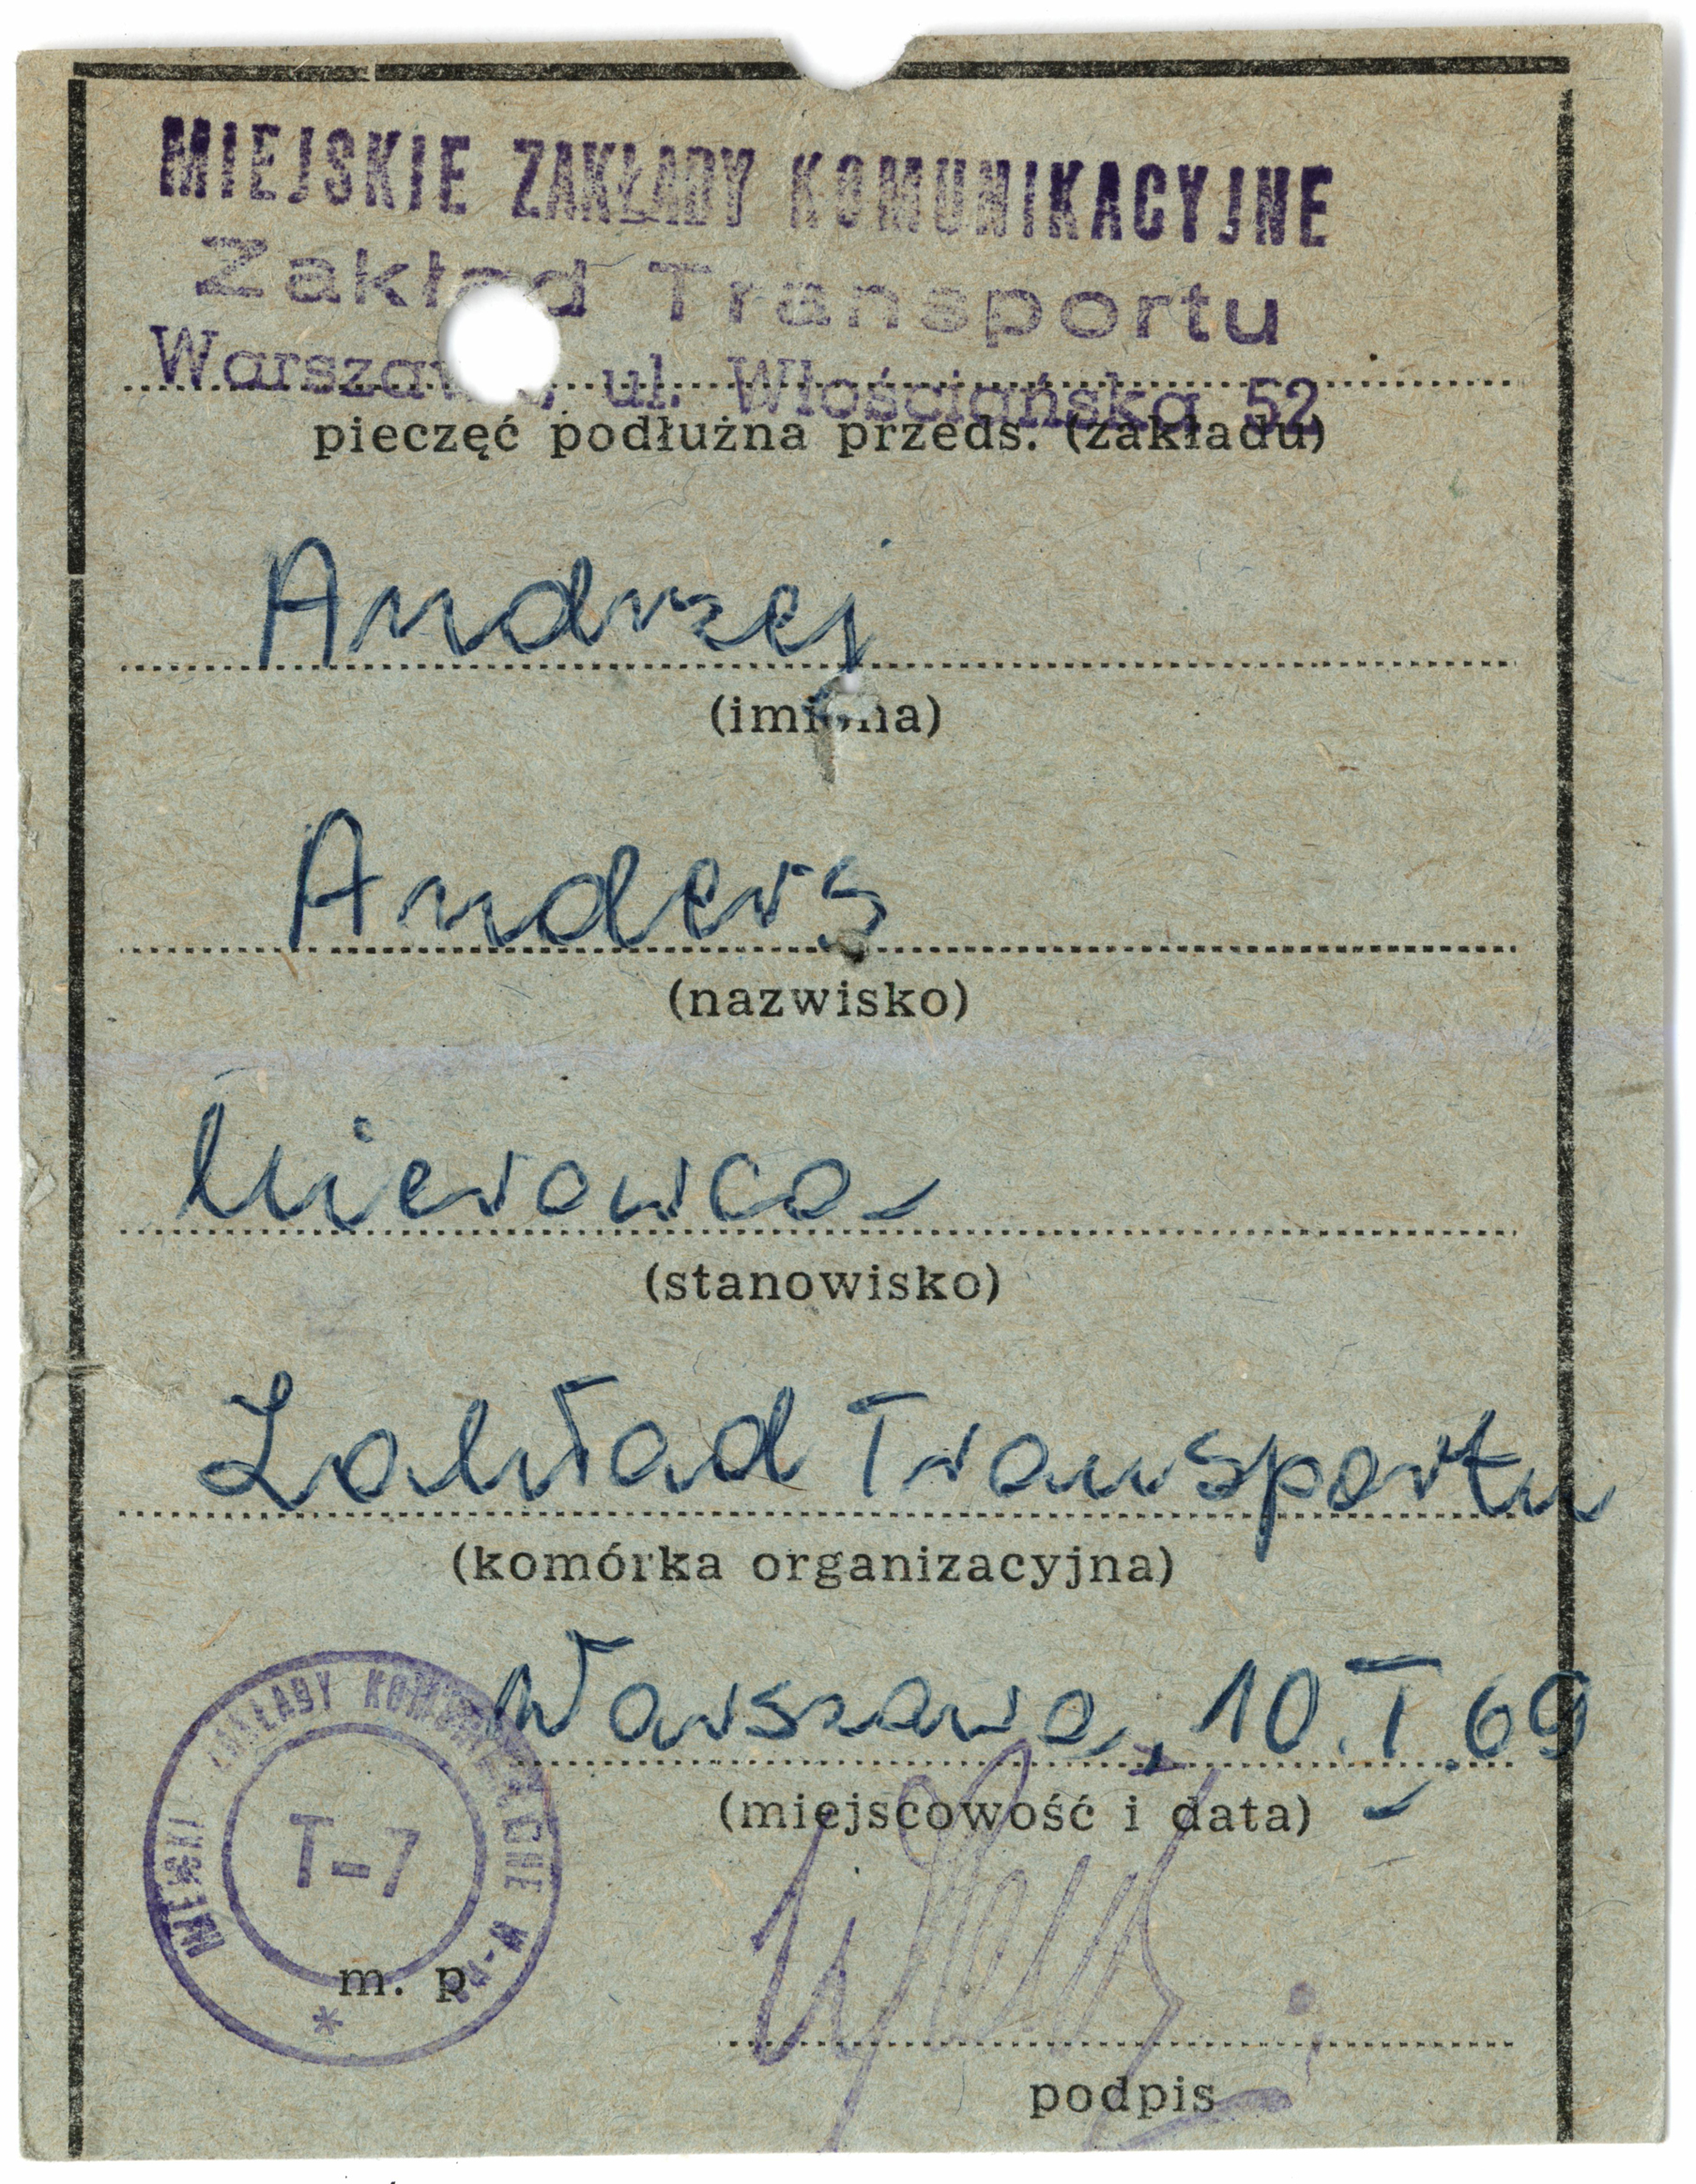 MIEJSKIE ZAKŁADY KOMUNIKACYJNE
Zakład Transportu
Warszawa, ul. Włościańska 52
pieczęć podłużna przeds. (zakładu)
Andrzej
(imiona)
Anders
(nazwisko)
kierowca
(stanowisko)
Zakład Transportu
(komórka organizacyjna)
Warszawa, 10.I.69
(miejscowość i data)
MIEJSKIE ZAKŁADY KOMUNIKACYJNE
T-7
m. p.
podpis